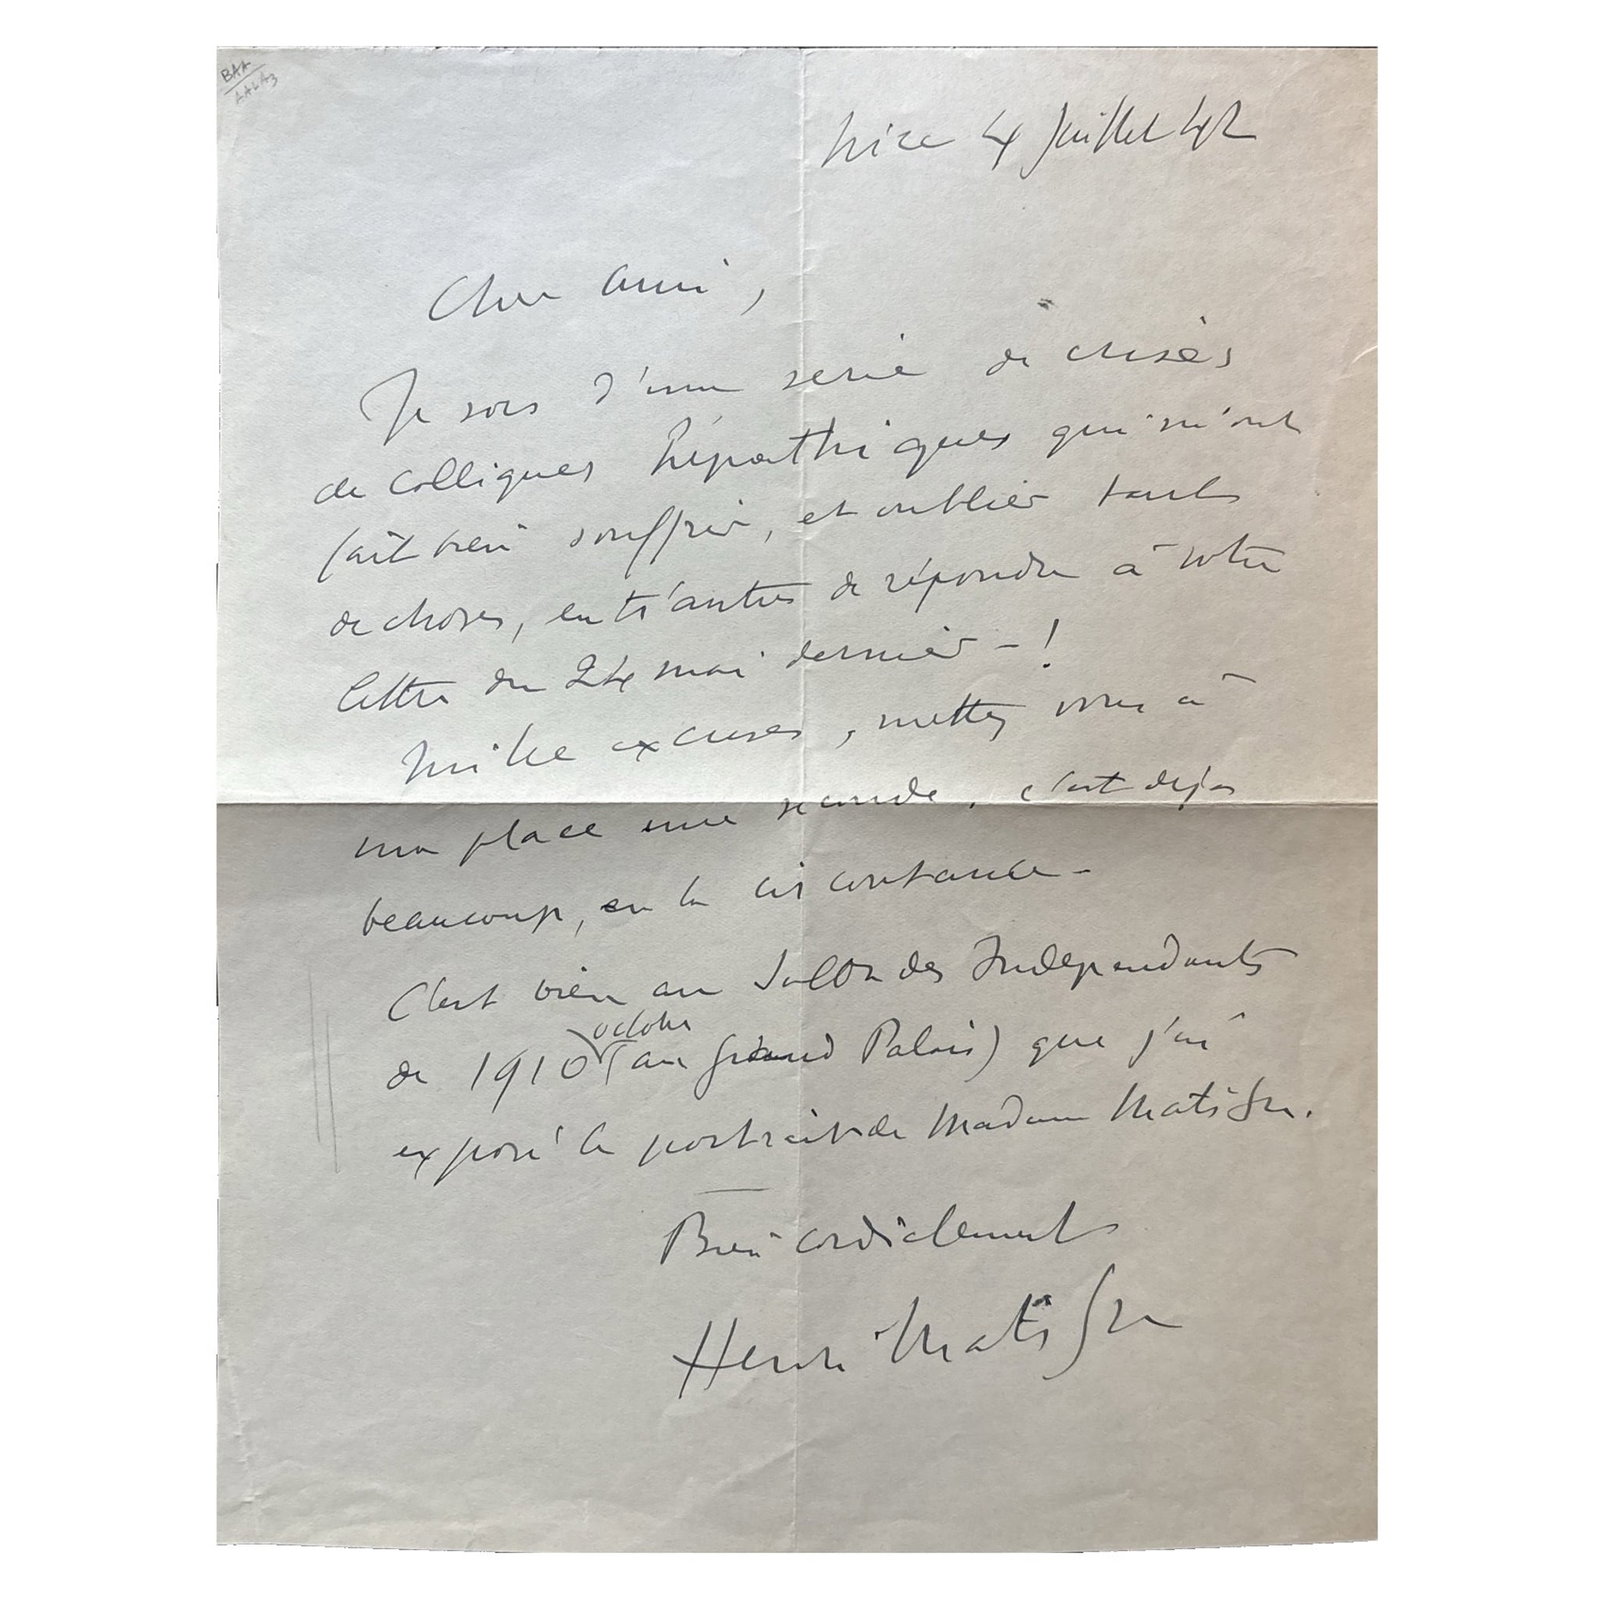 BAA
Nice 4 Juillet 42
Cher ami,
Je sors d'une serie de crises
de colliques hépathiques qui m'ont
fait bien souffrir, et oublier tant
de choses, entr'autres de répondre à votre
lettre du 24 mai dernier - !
Mille excuses, mettez vous à
ma place une seconde, c'est deja
beaucoup, en la circontance -
C'est bien au Salon des Independants
octobre
de 1910 (au Grand Palais) que j'ai
exposé le portrait de Madame Matisse.
Bien cordialement
Henri Matisse